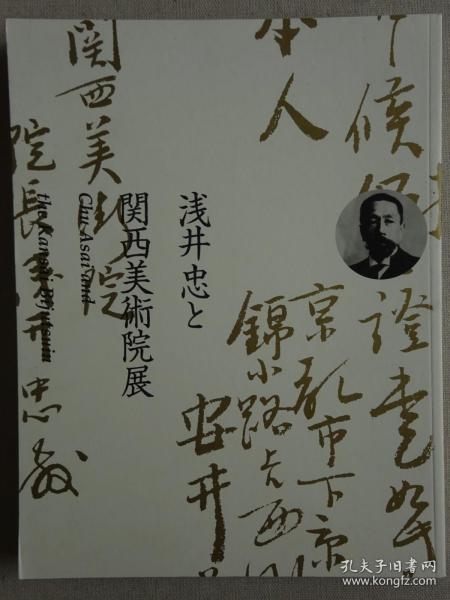 浅井忠と
関西美術院展
Chu Asai and
the Kansai Bijutsuin
候
證
本人
京都市下京
錦小路
安井
関西美術院
院長浅井忠
孔夫子旧书网
www.kongfz.com